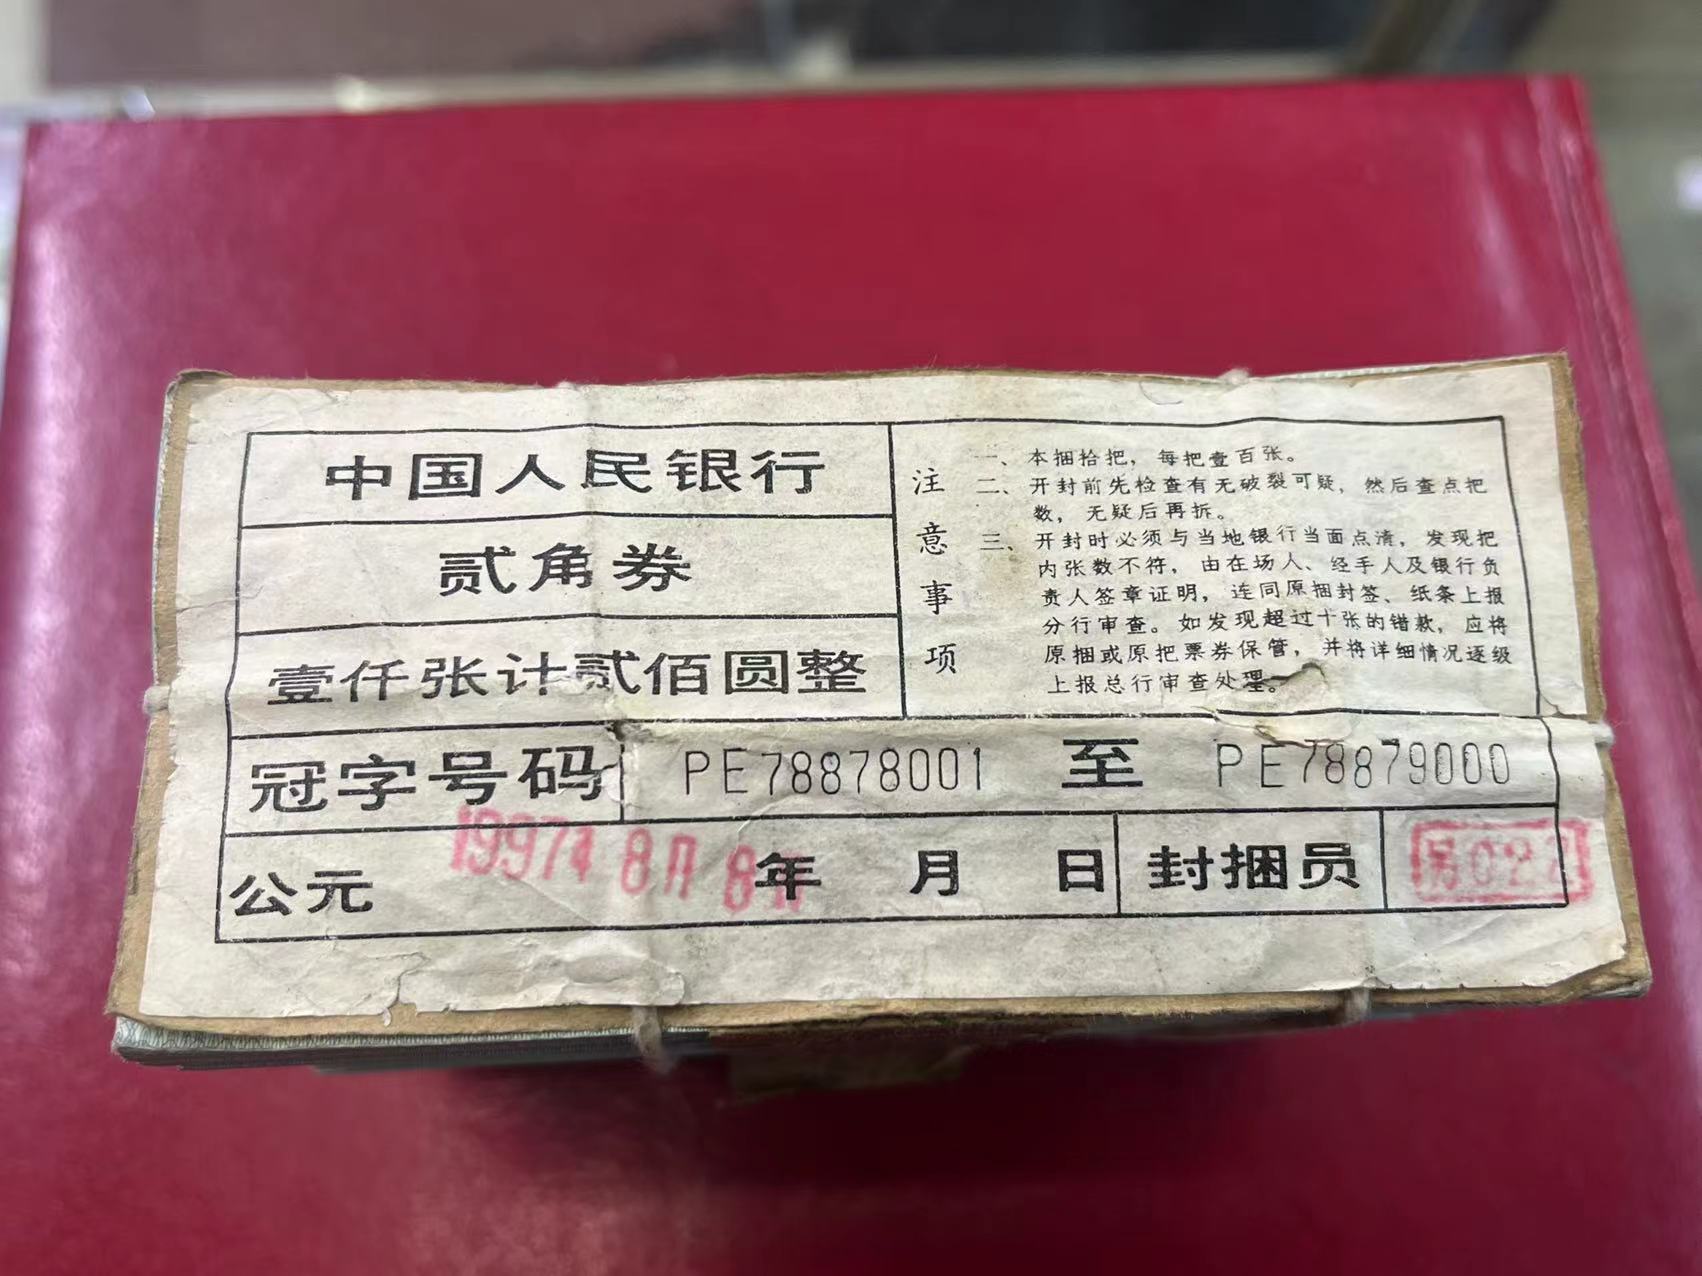 中国人民银行
贰角券
壹仟张计贰佰圆整
注意事项
一、本捆拾把，每把壹百张。
二、开封前先检查有无破裂可疑，然后查点把
数，无疑后再拆。
三、开封时必须与当地银行当面点清，发现把
内张数不符，由在场人、经手人及银行负
责人签章证明，连同原捆封签、纸条上报
分行审查。如发现超过十张的错款，应将
原捆或原把票券保管，并将详细情况逐级
上报总行审查处理。
冠字号码 PE78878001 至 PE78879000
公元 年 月 日 封捆员
1997年8月8日